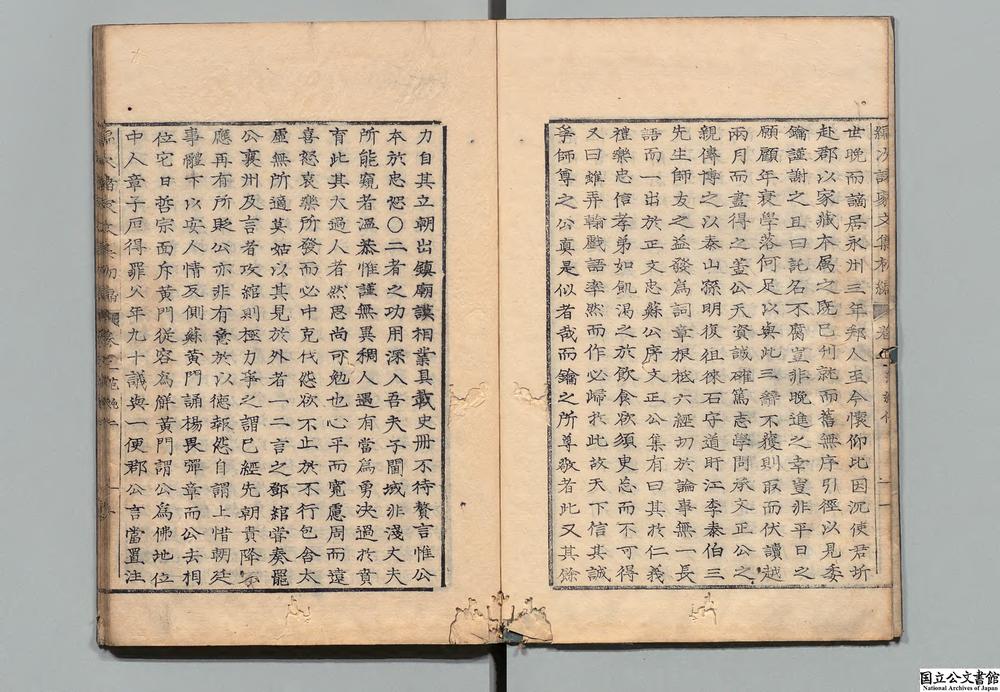 世晚而謫居永州三年邦人至今懷仰此因沉使君圻
赴郡以家藏本属之既已刊就而舊無序引徑以見委
鑰謹謝之且曰託名不腐豈非晚進之幸豈非平日之
願顧年衰學落何足以與此三辭不獲則取而伏讀越
兩月而盡得之蓋公天資誠確篤志學問承文正公之
親傳博之以泰山孫明復徂徠石守道盱江李泰伯三
先生師友之益發為詞章根柢六經切於論事無一長
語而一出於正文忠蘇公序文正公集有曰其扵仁義
禮樂忠信孝弟如飢渴之於飲食欲須臾忘而不可得
又曰雖弄翰戲語率然而作必歸扵此故天下信其誠
爭師尊之公真是似者哉而鑰之所尊敬者此又其餘
力自其立朝出鎮廟謨相業具載史册不待贅言惟公
本於忠恕〇二者之功用深入吾夫子閫域非淺丈夫
所能窺者温恭惟謹無異稠人還有當為勇決過扵賁
育此其大過人者然思尚可勉也心平而寬慮周而遠
喜怒哀樂所發而必中克伐怨欲不止扵不行包含太
虛無所適莫姑以其見於外者一二言之鄧綰嘗奏罷
公襄州及言者攻綰則極力爭之謂已經先朝責降不
應再有所貶公亦非有意於以德報怨自謂上惜朝廷
事體下以安人情反側蘇黃門誦楊畏彈章而公去相
位它日哲宗面斥黃門從容為解黃門謂公為佛地位
中人章子厚得罪父年九十議與一便郡公言當置注
国立公文書館
National Archives of Japan